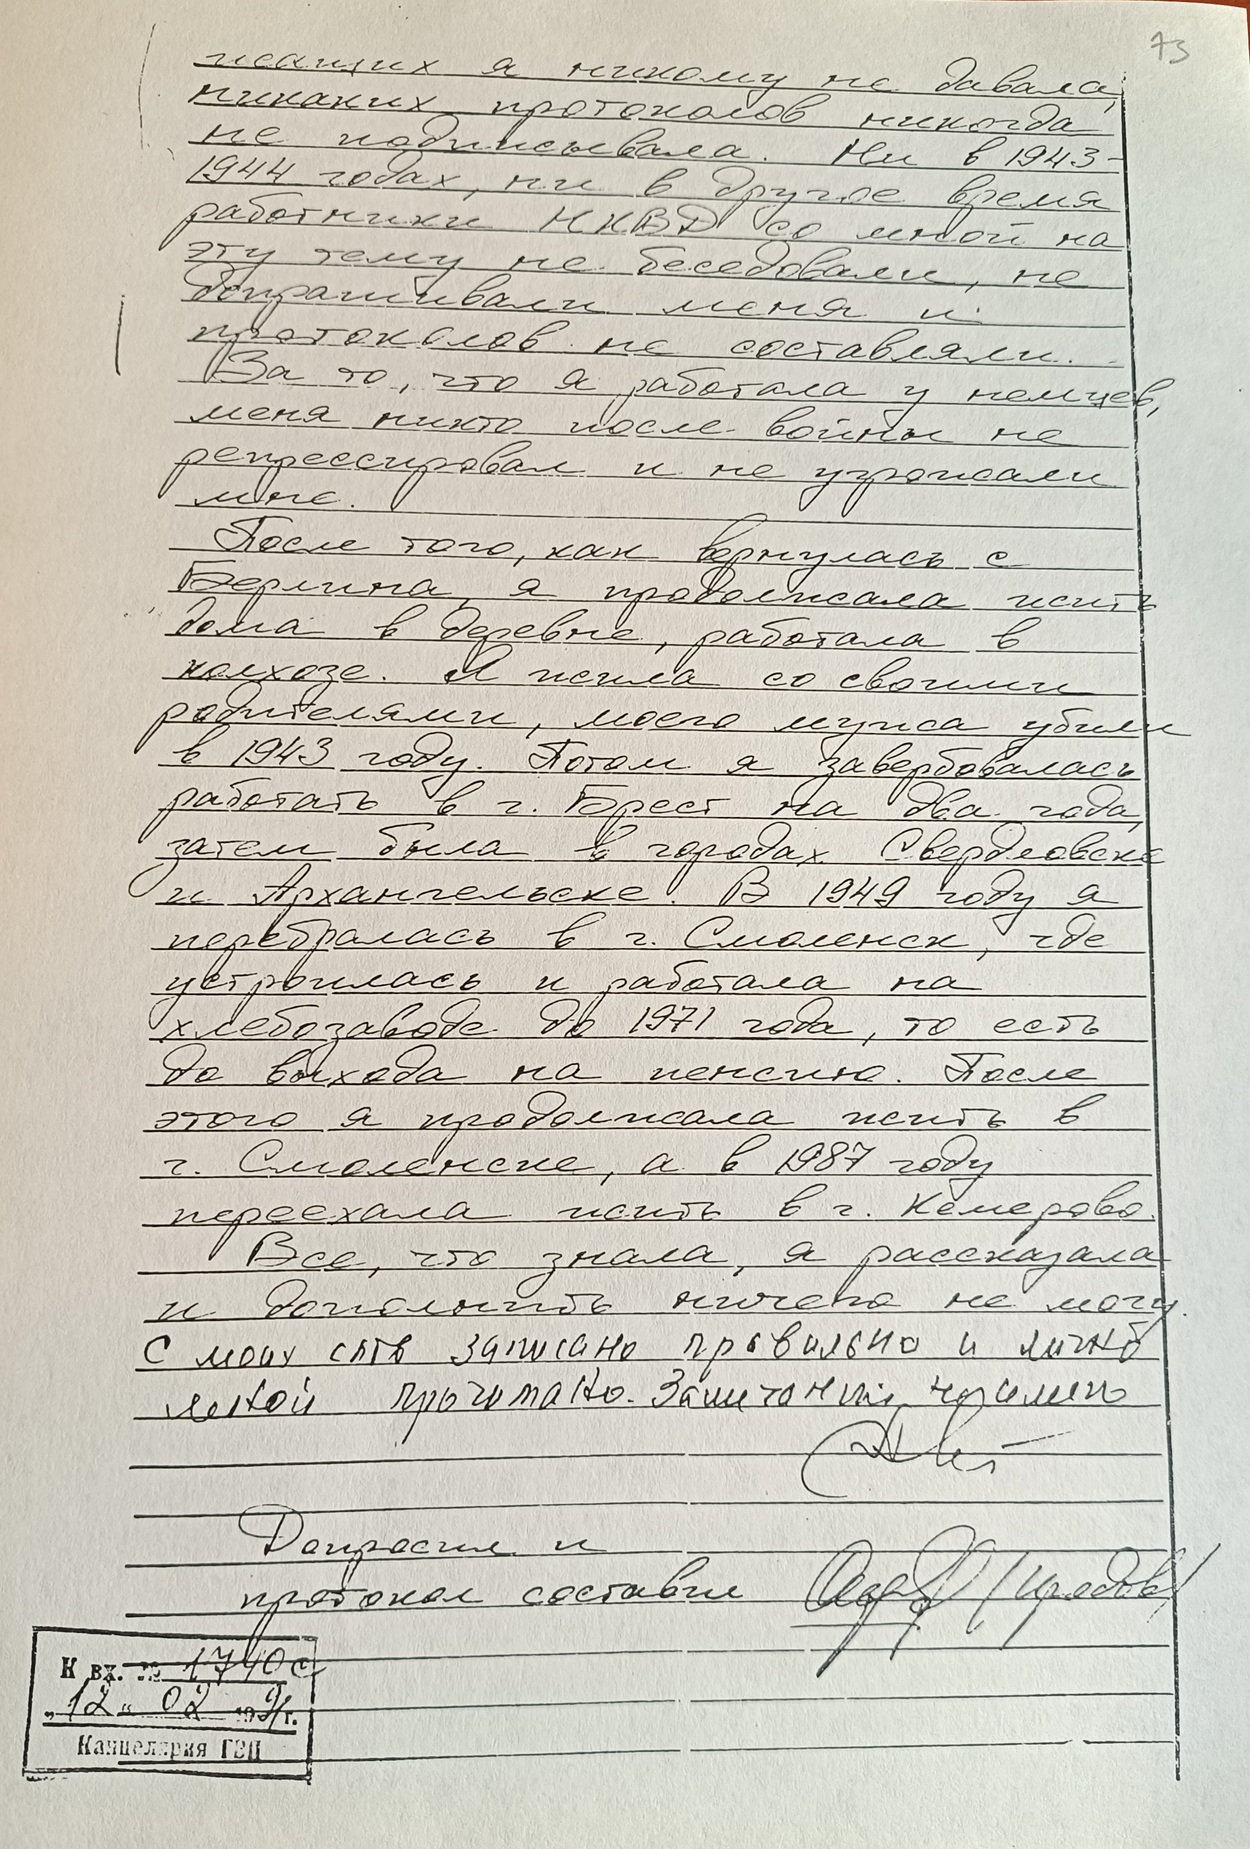 73
писащих я никому не давала,
никаких протоколов никогда
не подписывала. Ни в 1943-
1944 годах, ни в другое время
работники НКВД со мной на
эту тему не беседовали, не
допрашивали меня и
протоколов не составляли.
За то, что я работала у немцев,
меня никто после войны не
репрессировал и не угрожали
мне.
После того, как вернулась с
Берлина, я продолжала жить
дома в деревне, работала в
колхозе. Я жила со своими
родителями, моего мужа убили
в 1943 году. Потом я завербовалась
работать в г. Брест на два года,
затем была в городах Свердловске
и Архангельске. В 1949 году я
перебралась в г. Смоленск, где
устроилась и работала на
хлебозаводе до 1971 года, то есть
до выхода на пенсию. После
этого я продолжала жить в
г. Смоленске, а в 1987 году
переехала жить в г. Кемерово.
Все, что знала, я рассказала
и дополнить ничего не могу.
С моих слов записано правильно и лично
мной прочитано. Замечаний не имею
Допросил и
протокол составил
К вх. № 1740с
"12" 02 1991г.
Канцелярия ГВП